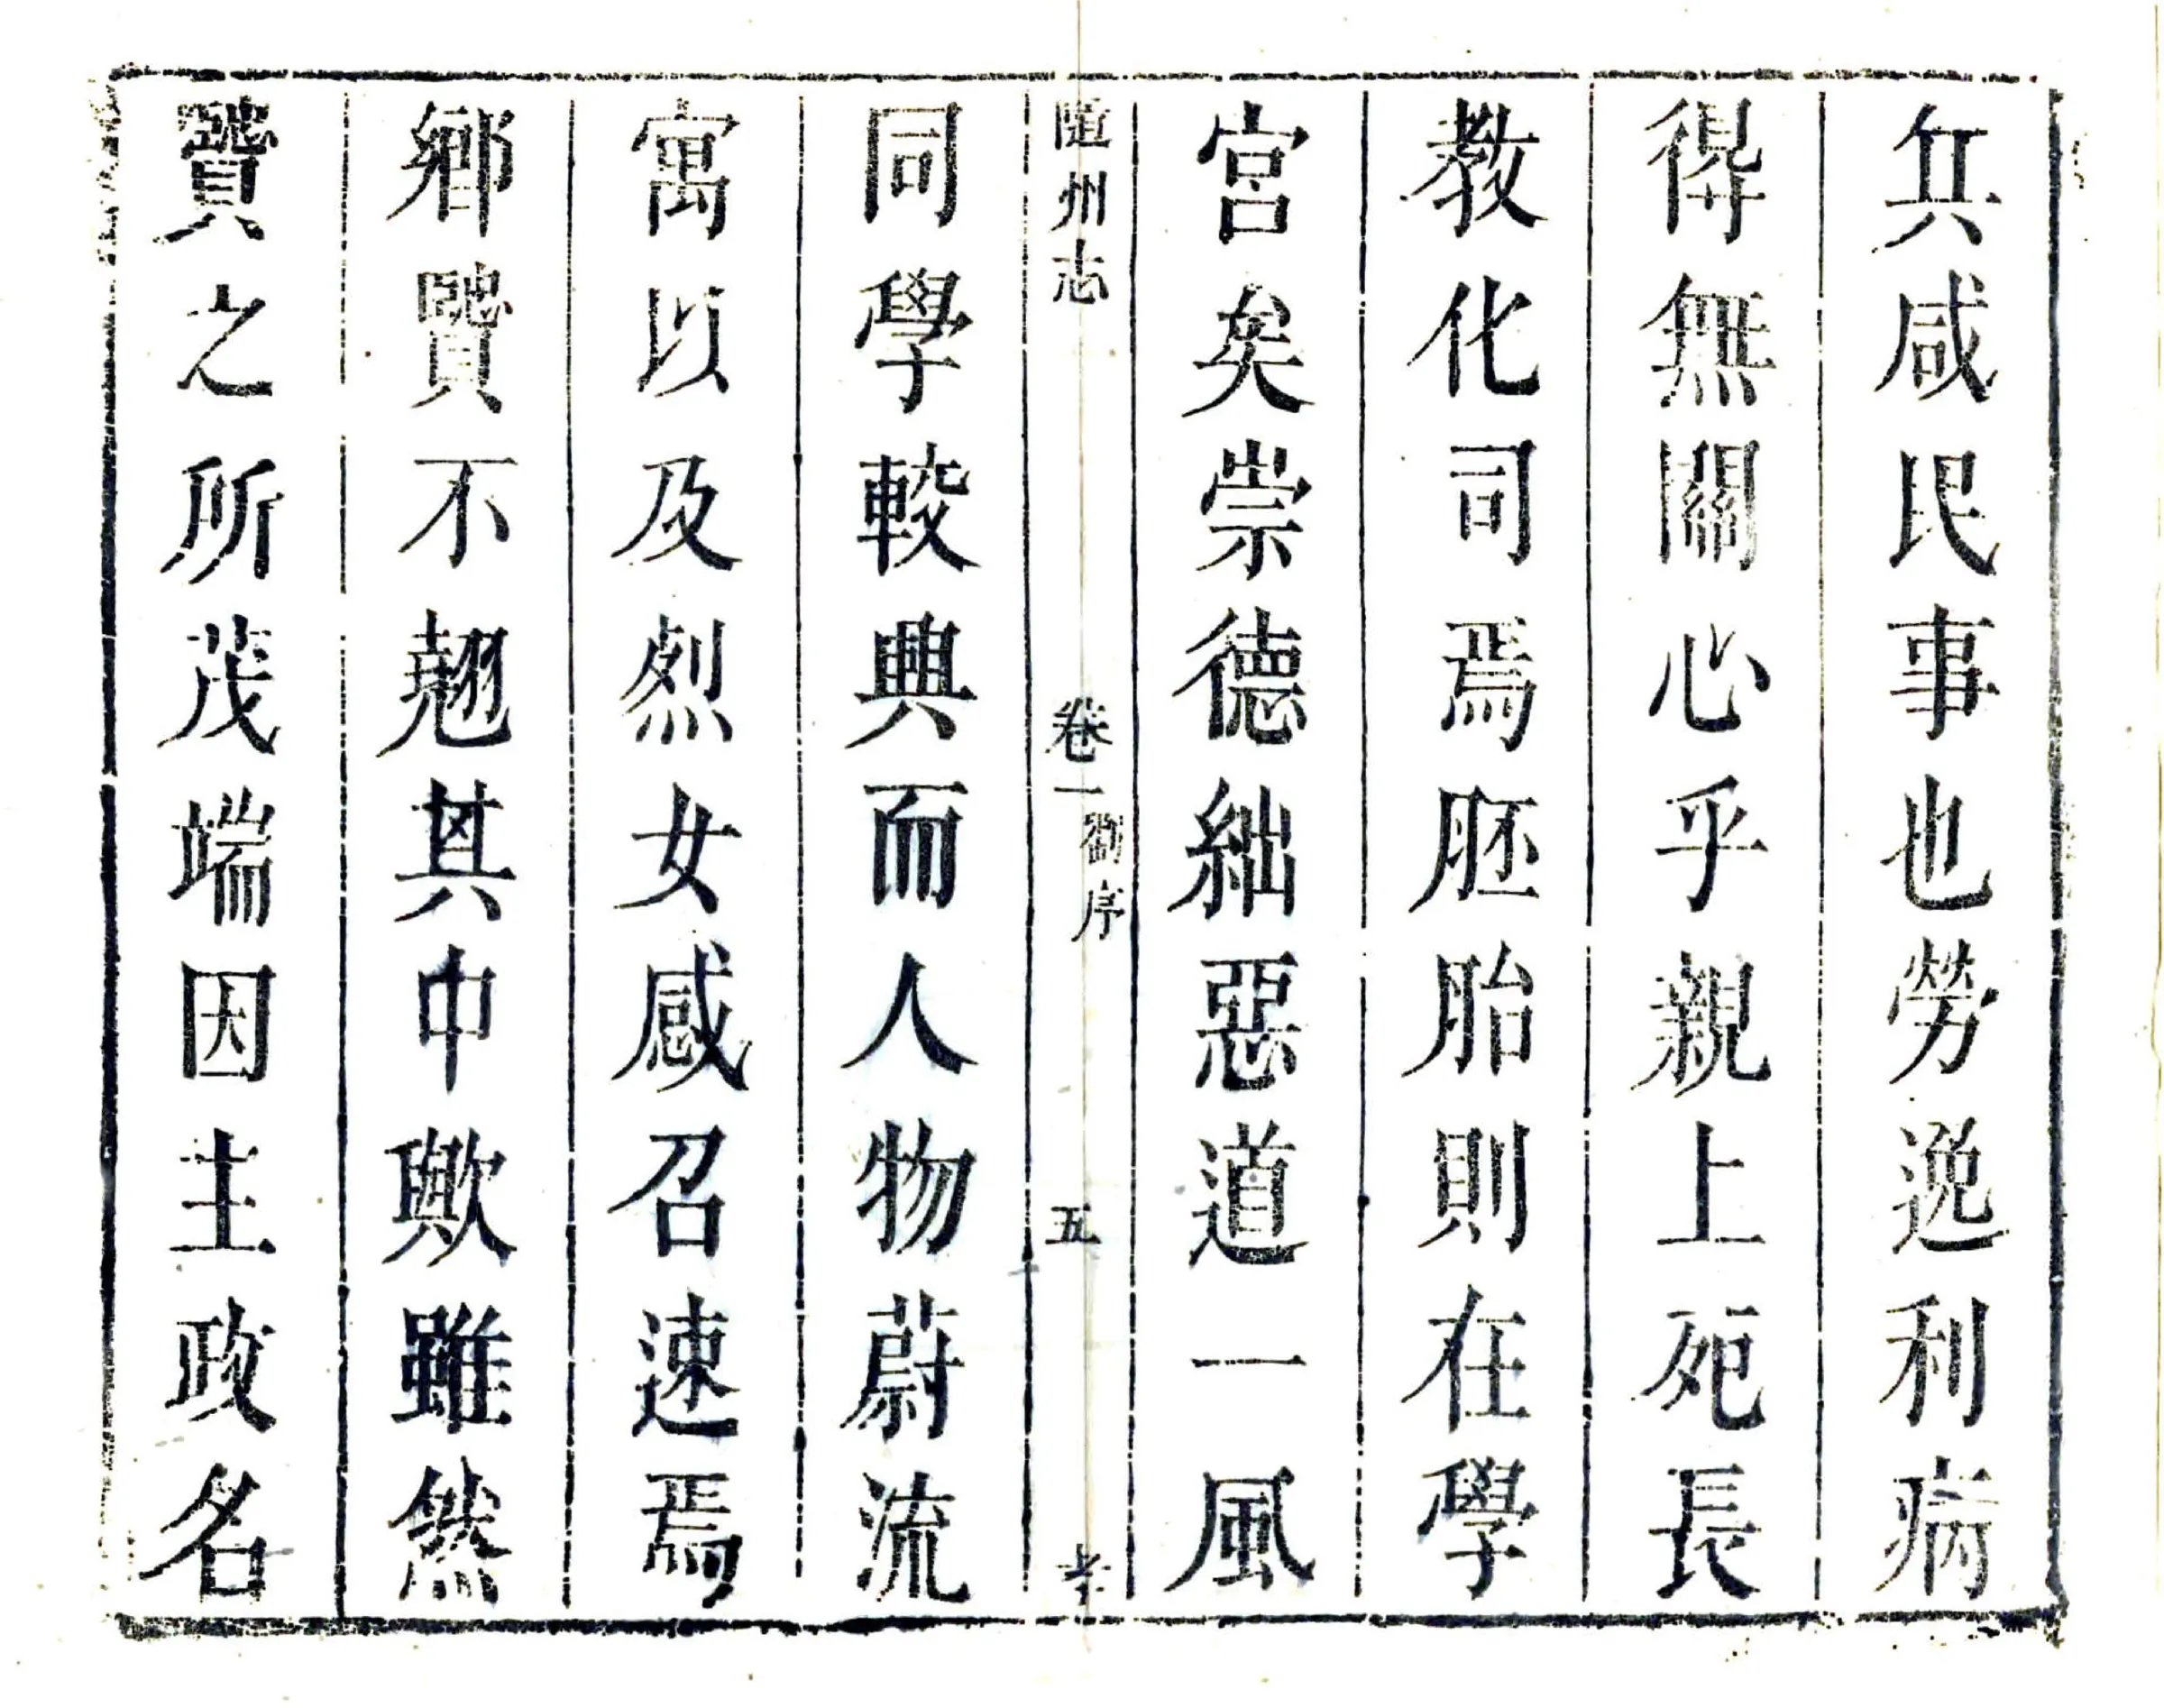 兵咸民事也勞逸利病
得無關心乎親上死長
教化司焉胚胎則在學
宮矣崇德絀惡道一風
隨州志
卷一
劉序
五
同學較典而人物蔚流
寓以及烈女感召速焉
鄉賢不翹其中歟雖然
賢之所茂端因主政名